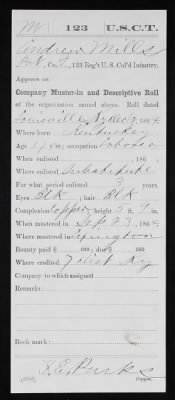 M 123 U.S.C.T.
Andrew Mills
Pvt., Co. , 123 Reg't U.S. Col'd Infantry.
Appears on
Company Muster-in and Descriptive Roll
of the organization named above. Roll dated
Louisville Ky Dec 9, 1864
Where born Kentucky
Age yrs; occupation Laborer
When enlisted , 186 .
Where enlisted
For what period enlisted 3 years.
Eyes Blk ; hair Blk
Complexion Copper; height 5 ft. 9 in.
When mustered in Sep 23, 1864.
Where mustered in Lexington
Bounty paid $ 100; due $ 100
Where credited 7 dist Ky
Company to which assigned
Remarks:
Book mark:
Copyist.